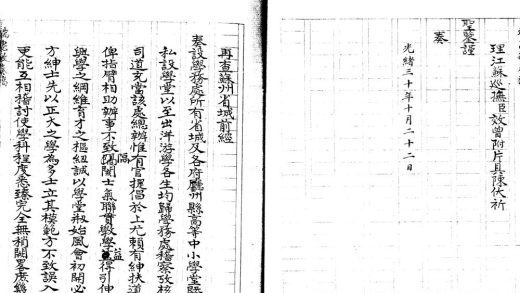 理江蘇巡撫臣效曾附片具陳伏祈
聖鑒謹
奏
光緒三十年十月二十二日
再查蘇州省城前經
奏設學務處所有省城及各府廳州縣高等中小學堂暨
私設學堂以至出洋游學各生均歸學務處稽察考核
司道充當該處總辦惟有官提倡於上尤賴有紳扶
俾指臂相助辦事不致隔閡士氣聯貫數學益得引伸
興學之綱維育才之樞紐誠以學堂叔始風會初開必
方紳士先以正大之學為多士立其模範方不致誤入
更能互相稽討使學科程度悉臻完全無稍闕略庶幾